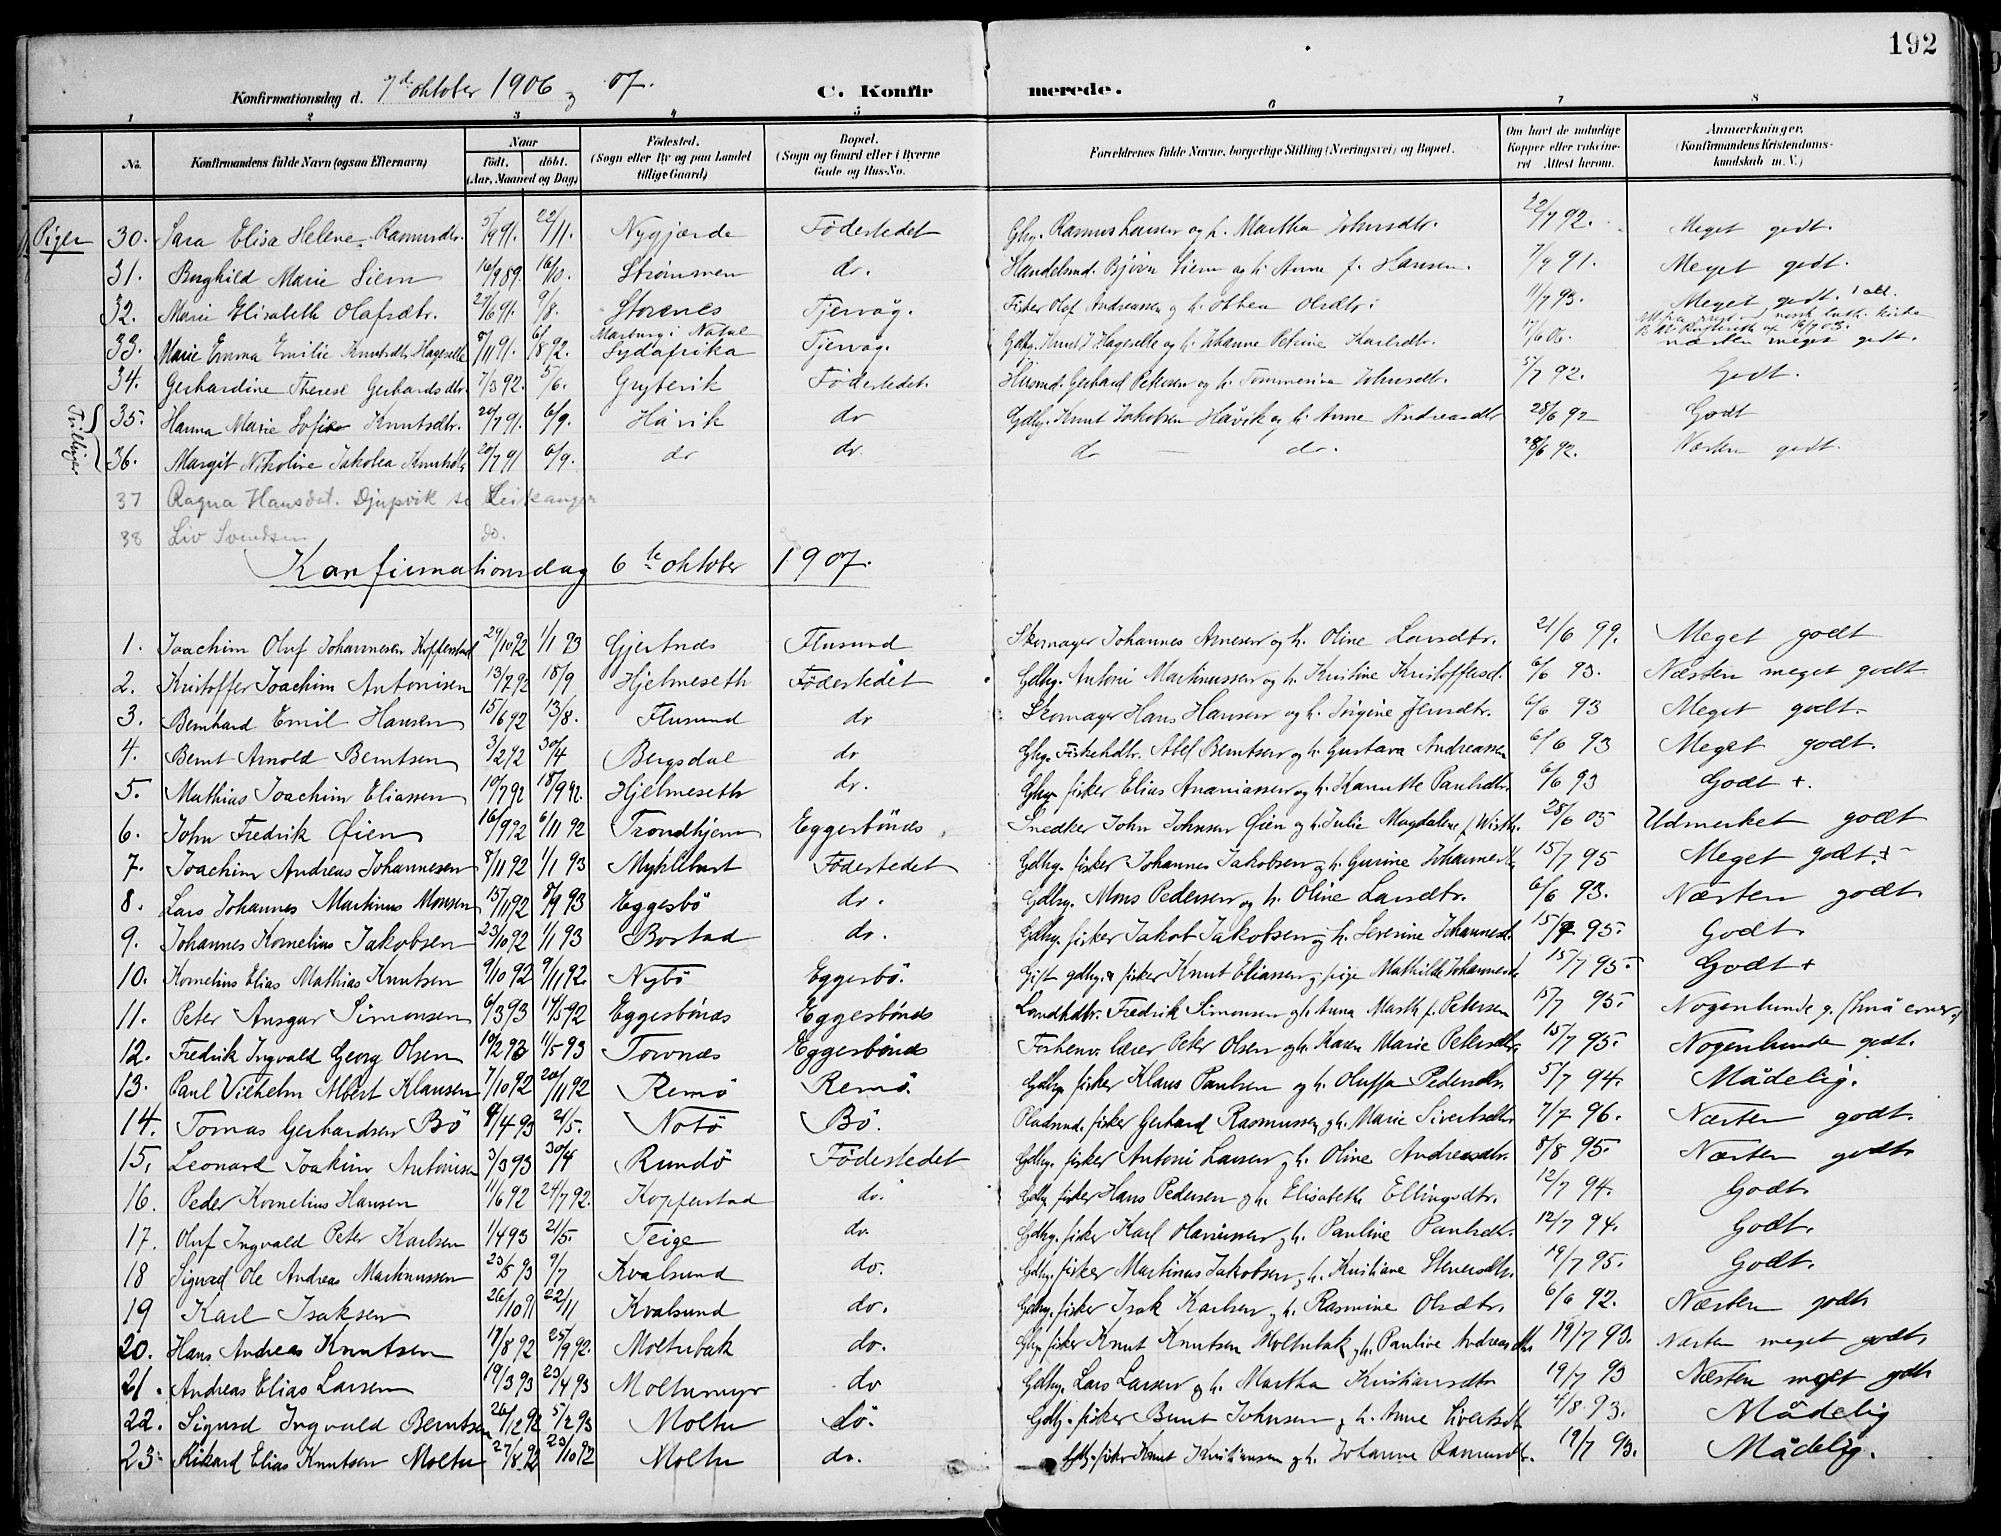 192
Konfirmationsdag d. 7de oktober 1906 og 07. C. Konfirmerede.
1 2 3 4 5 6 7 8
No. Konfirmandens fulde Navn (ogsaa Efternavn) Naar født. døbt. (Aar, Maaned og Dag) Fødested. (Sogn eller By og paa Landet tillige Gaard) Bopæl. (Sogn og Gaard eller i Byerne Gade og Hus-No. Forældrenes fulde Navne, borgerlige Stilling (Næringsvei) og Bopæl. Om havt de naturlige Kopper eller vaccineret Attest herom. Anmærkninger. (Konfirmandens Kristendomskundskab m. V.)
Piger 30. Sara Elisa Helene Rasmusdtr. 5/9 91. 22/11. Nygjærde Fødestedet Gbr. Rasmus Larsen og h. Martha Johnsdtr. 22/7 92. Meget godt.
31. Borghild Marie Siem 16/9 89. 16/10. Strømmen do. Handelsmd. Bjørn Siem og h. Anne f. Hansen. 7/9 91. Meget godt.
32. Marie Elisabeth Olafsdtr. 27/6 91. 9/8. Storenes Tjervåg. Fisker Olaf Andreassen og h. Othea Olsdtr. 11/7 93. Meget godt.
33. Marie Emma Emilie Knutsdtr. Hageselle 8/11 91. 6/8 92. Marburg i Natal Sydafrika Tjervåg. Gdbr. Knut J Hageselle og h. Johanne Petrine Karlsdtr. 7/6 06. næsten meget godt.
34. Gerhardine Therese Gerhardsdtr. 7/3 92. 5/6. Grytevik Fødestedet. Husmd. Gerhard Petersen og h. Tommesine Johnsdtr. 5/7 92. Godt.
Tvillinger
35. Hanna Marie Sofie Knutsdtr. 20/7 91. 6/9. Håvik do Gdbr. Knut Jakobsen Håvik og h. Anne Andreasdtr 28/6 92 Godt
36. Margit Nikoline Jakobea Knutsdtr 20/7 91 6/9. do do do - do. 28/6 92. Næsten godt.
37 Ragna Hansdat. Djupvik se Leikanger
38 Liv Svendsen do.
Konfirmationsdag 6te oktober 1907.
1. Joachim Oluf Johannesen Kopperstad 29/10 92 1/1 93 Gjertnes Flusund Skomager Johannes Arnesen og h. Oline Larsdtr. 21/6 99. Meget godt
2. Kristoffer Joachim Antonisen 13/7 92 18/9 Hjelmeseth Fødestedet Gdbr. Antoni Martinussen og h. Kristine Kristoffersd. 6/6 93. Næsten meget godt
3. Bernhard Emil Hansen 15/6 92 13/8. Flusund do Skomager Hans Hansen og h. Jørgine Jensdtr. 6/6 93 Meget godt.
4. Bernt Arnold Berntsen 3/2 92 30/4 Bergsdal do Gbr. Fiskehdlr. Abel Berntsen og h. Gustava Andreassen 6/6 93 Meget godt.
5. Mathias Joachim Eliassen 10/7 92 18/9 92. Hjelmeseth do. Gbr. fisker Elias Ananiassen og h. Hanette Paulsdtr. 6/6 93 Godt +.
6. John Fredrik Øien 16/9 92 6/11 92 Trondhjem Eggesbønes Snedker John Johnsen Øien og h. Julie Magdalene f. Wisth. 28/6 05 Udmerket godt
7. Joachim Andreas Johannesen 8/11 92 1/1 93 Myklebust Fødestedet Gdbr. fisker Johannes Jakobsen og h. Gurine Johannesdt. 15/7 95 Meget godt. ±
8. Lars Johannes Martinus Monsen 15/11 92 8/9 93 Eggesbø do. Gdbr. Mons Pedersen og h. Oline Larsdtr. 6/6 93. Næsten godt.
9. Johannes Kornelius Jakobsen 23/10 92 1/1 93 Borstad do. Gdbr. fisker Jakob Jakobsen og h. Severine Johannesd. 15/7 95. Godt.
10. Kornelius Elias Mathias Knutsen 9/10 92 9/11 92. Nybø Eggesbø. Gift gdbr. & fisker Knut Eliassen og pige Mathilde Johannesdt. 15/7 95. Godt +
11. Peter Ansgar Simonsen 6/3 93 14/5 92 Eggesbønes Eggesbønes Landhdlr. Fredrik Simonsen og h. Anna Marth. f. Petersen 15/7 95. Nogenlunde g. (Små evner.)
12. Fredrik Ingvald Georg Olsen 10/2 93 11/5 93 Torvnes Eggesbønes Forhenv. lærer Peter Olsen og h. Karen Marie Petersdtr. 15/7 95. Nogenlunde godt.
13. Paul Vilhelm Albert Klausen 7/10 92 20/11 92 Remø Remø. Gdbr. fisker Klaus Paulsen og h. Oluffa Pedersdtr. 5/7 94. Mådelig.
14. Tomas Gerhardsen Bø 9/4 93 21/5. Notø Bø. Pladsmd. fisker Gerhard Rasmussen og h. Marie Sivertsdtr. 7/7 96. Næsten godt.
15. Leonard Joakim Antonisen 3/3 93 30/4 Rundø Fødestedet Gdbr. fisker Antoni Larsen og h. Oline Andreasdtr. 8/8 95. Næsten godt
16. Peder Kornelius Hansen 11/6 92 24/7 92. Kopperstad do. Gdbr. fisker Hans Pedersen og h. Elisabeth Ellingsdtr. 12/7 94. Godt
17. Oluf Ingvald Peter Karlsen 1/4 93 21/5. Teige do. Gdbr. fisker Karl Olaviussen og h. Pauline Paulsdtr. 12/7 94. Godt.
18 Sigurd Ole Andreas Martinussen 23/5 93 9/7 Kvalsund do. Gdbr. fisker Martinus Jakobsen og h. Kristiane Steversdtr. 19/7 95. Godt.
19 Karl Isaksen 26/10 91 22/11 Kvalsund do. Gdbr. fisker Isak Karlsen og h. Rasmine Olsdtr. 6/6 92. Næsten godt
20. Hans Andreas Knutsen 17/8 92 25/9 92. Moltubak do. Gbr. fisker Knut Knutsen Moltubak og h. Pauline Andreasdtr 19/7 93. Næsten meget godt
21. Andreas Elias Larsen 19/3 93 23/4 93 Moltumyr do Gdbr. Lars Larsen og h. Martha Kristiansdtr 19/7 93 Næsten meget godt
22. Sigurd Ingvald Berntsen 26/12 92 5/2 93 Moltu do. Gdbr. fisker Bernt Johnsen og h. Anne Sivertsdt 4/8 93. Mådelig
23. Rikard Elias Knutsen Moltu 27/8 92 23/10 92 Moltu do. Gdbr. fisker Knut Kristiansen og h. Johanne Rasmusdtr. 19/7 93. Mådelig.